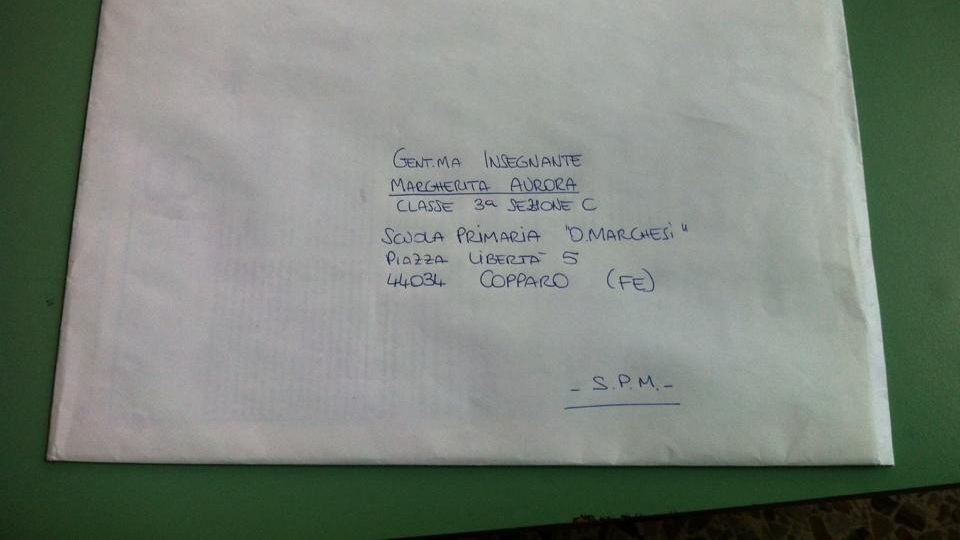 GENT.MA INSEGNANTE
MARGHERITA AURORA
CLASSE 3a SEZIONE C
SCUOLA PRIMARIA "D.MARCHESI"
PIAZZA LIBERTA' 5
44034 COPPARO (FE)
- S.P.M.-